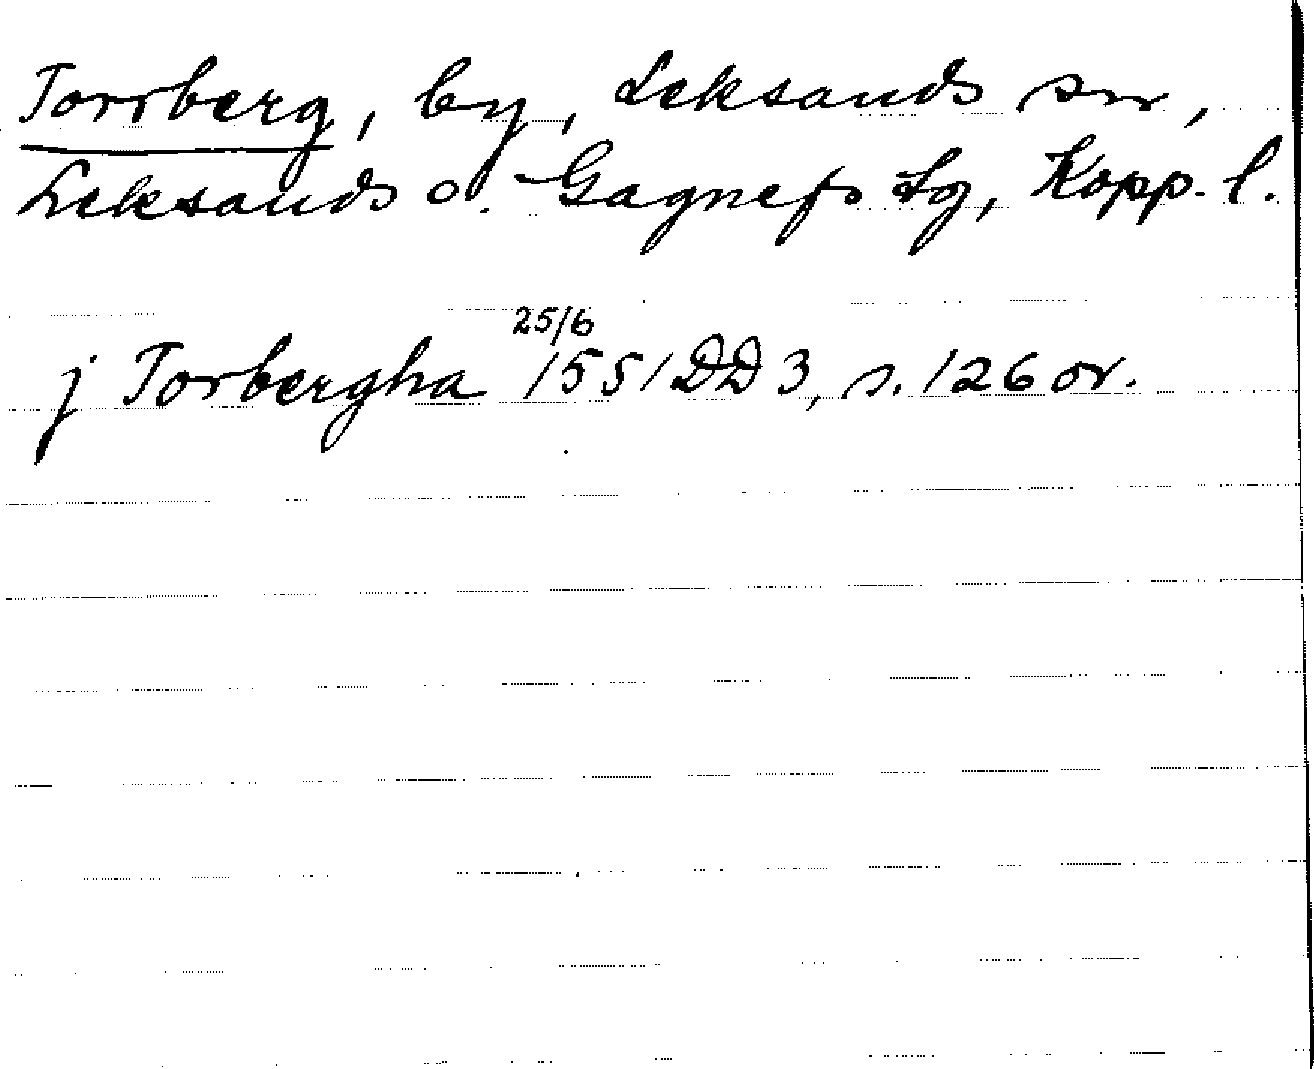 Torrberg, by, Leksands sn,
Leksands o. Gagnefs tg, Kopp. l.
25/6
j Torbergha 1551 DD 3, s. 126 or.